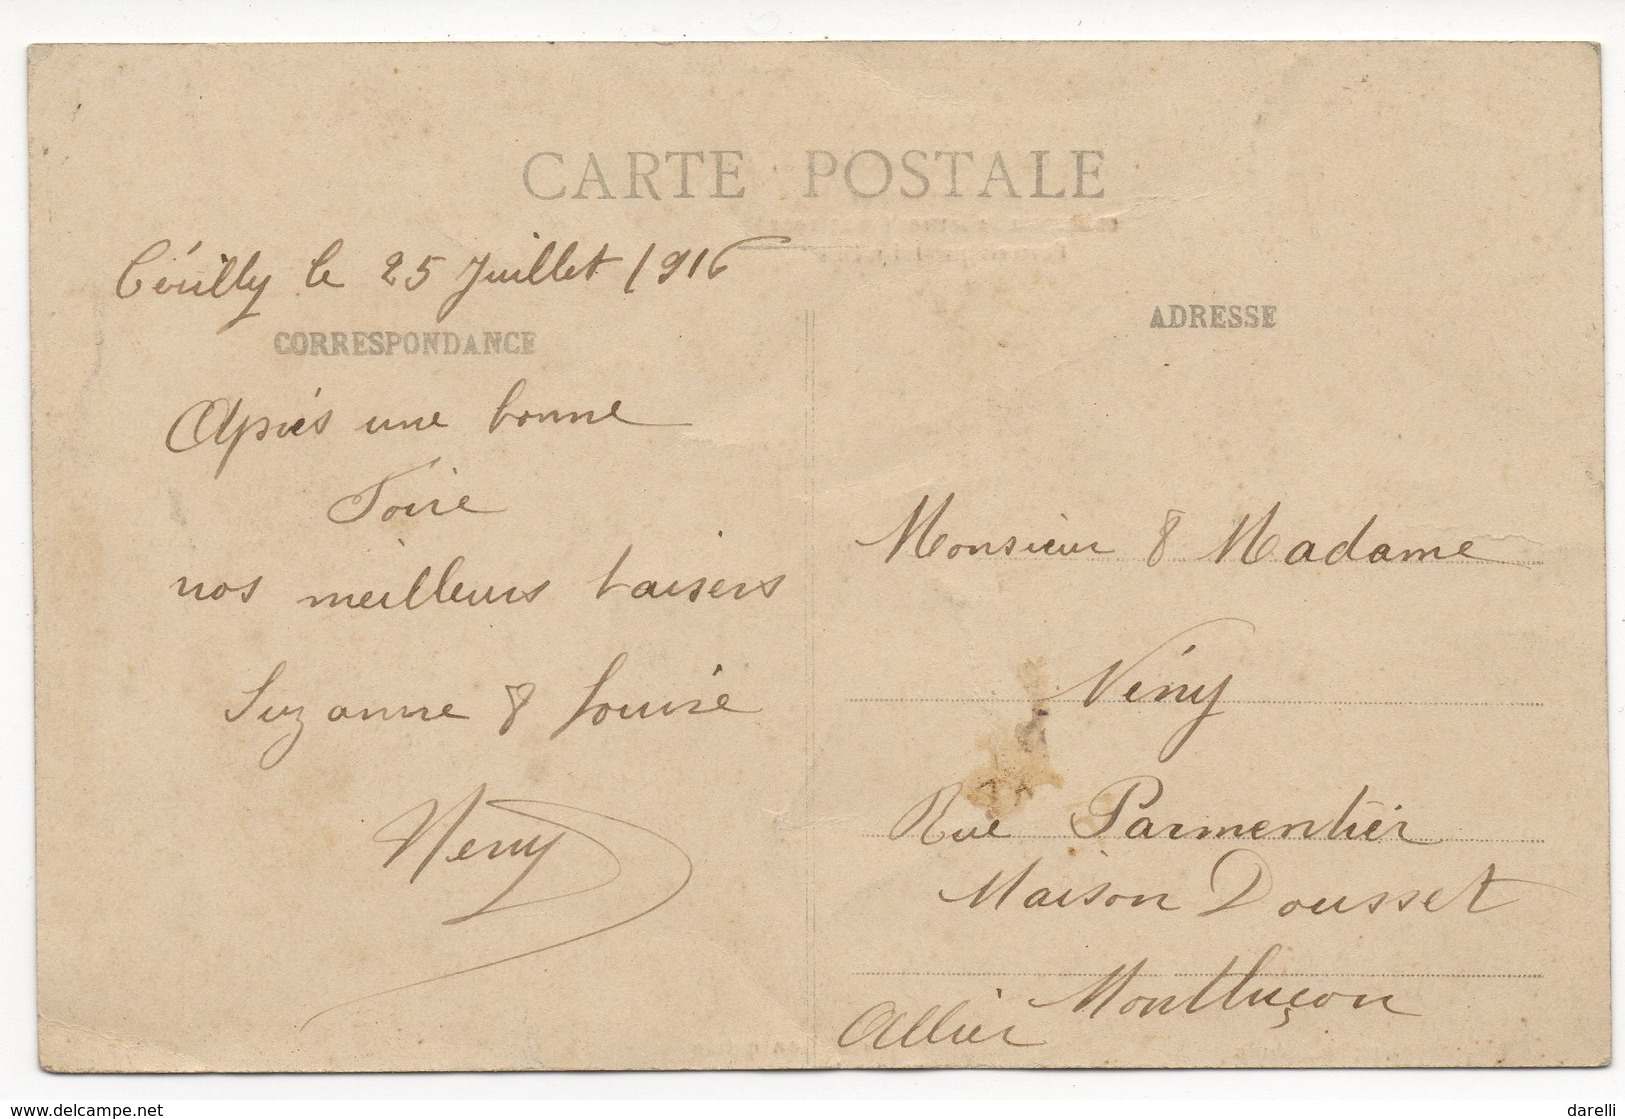 CARTE POSTALE
Cérilly le 25 Juillet 1916
CORRESPONDANCE
Après une bonne
Foire
nos meilleurs baisers
Suzanne & Louise
Neny
ADRESSE
Monsieur & Madame
Nény
Rue Parmentier
Maison Dousset
Montluçon
Allier
www.delcampe.net
darelli